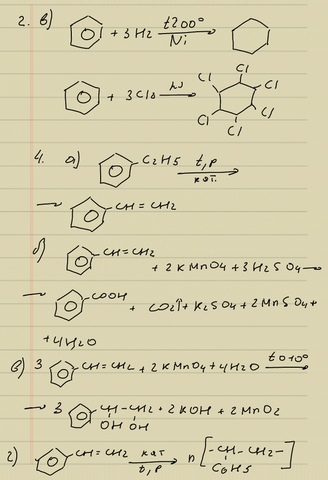 2. в) + 3H2 t200° Ni
+ 3Cl2 hν Cl Cl Cl Cl Cl Cl
4. а) C2H5 t,p кат.
→ CH=CH2
б) CH=CH2 + 2KMnO4 + 3H2SO4 →
→ COOH + CO2↑ + K2SO4 + 2MnSO4 +
+ 4H2O
в) 3 CH=CH2 + 2KMnO4 + 4H2O t0÷10°
→ 3 CH-CH2 + 2KOH + 2MnO2
OH OH
г) CH=CH2 кат t,p n [-CH-CH2-]
C6H5